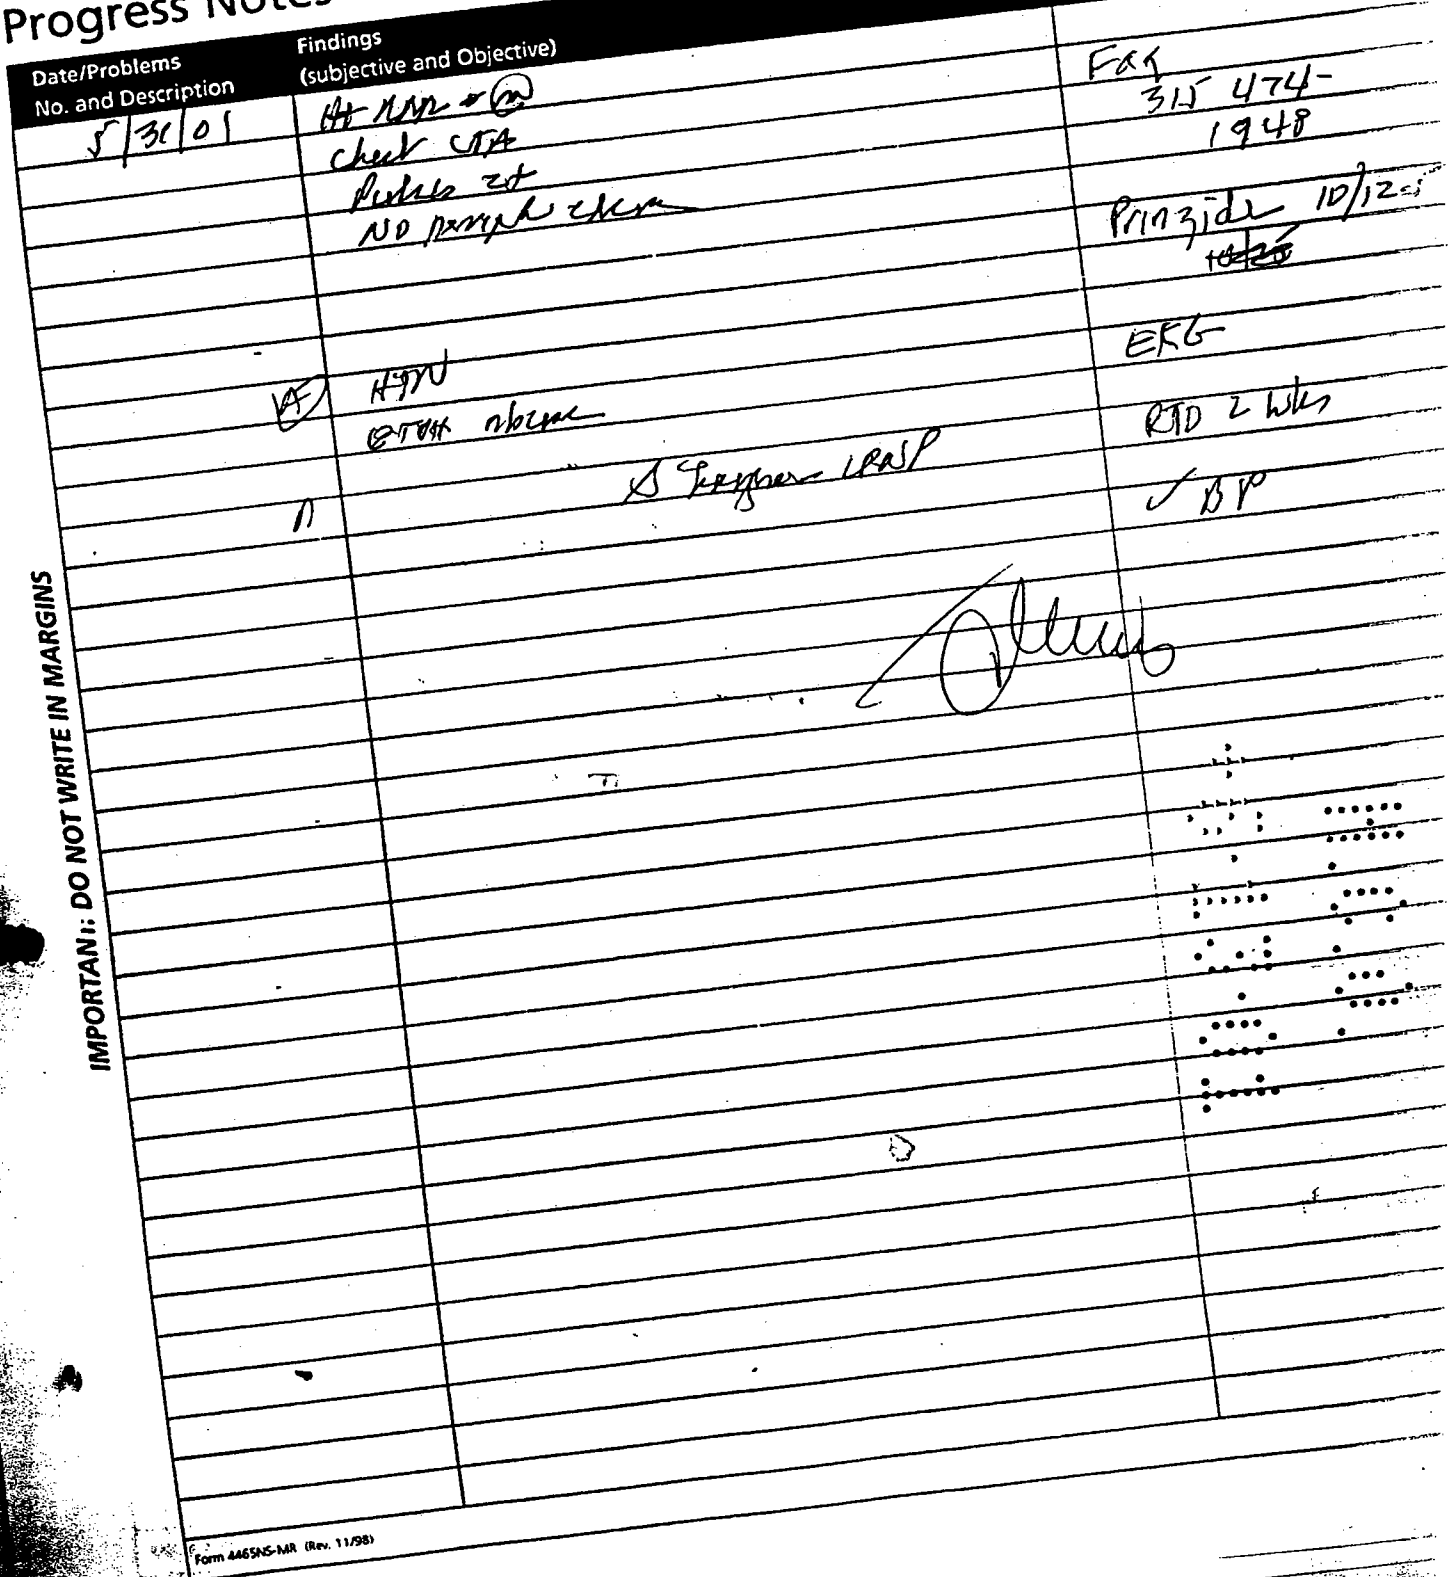 Progress Notes
Date/Problems
No. and Description
Findings
(subjective and Objective)
5/31/01
Ht RRR
Chest CTA
Pulses 2+
No edema
HTN
ETOH abuse
CRNP
Fax
315 474-
1948
Prinzide 10/12.5
EKG
RTO 2 wks
✓ BP
IMPORTANT: DO NOT WRITE IN MARGINS
Form 4465NS-MR (Rev. 11/98)